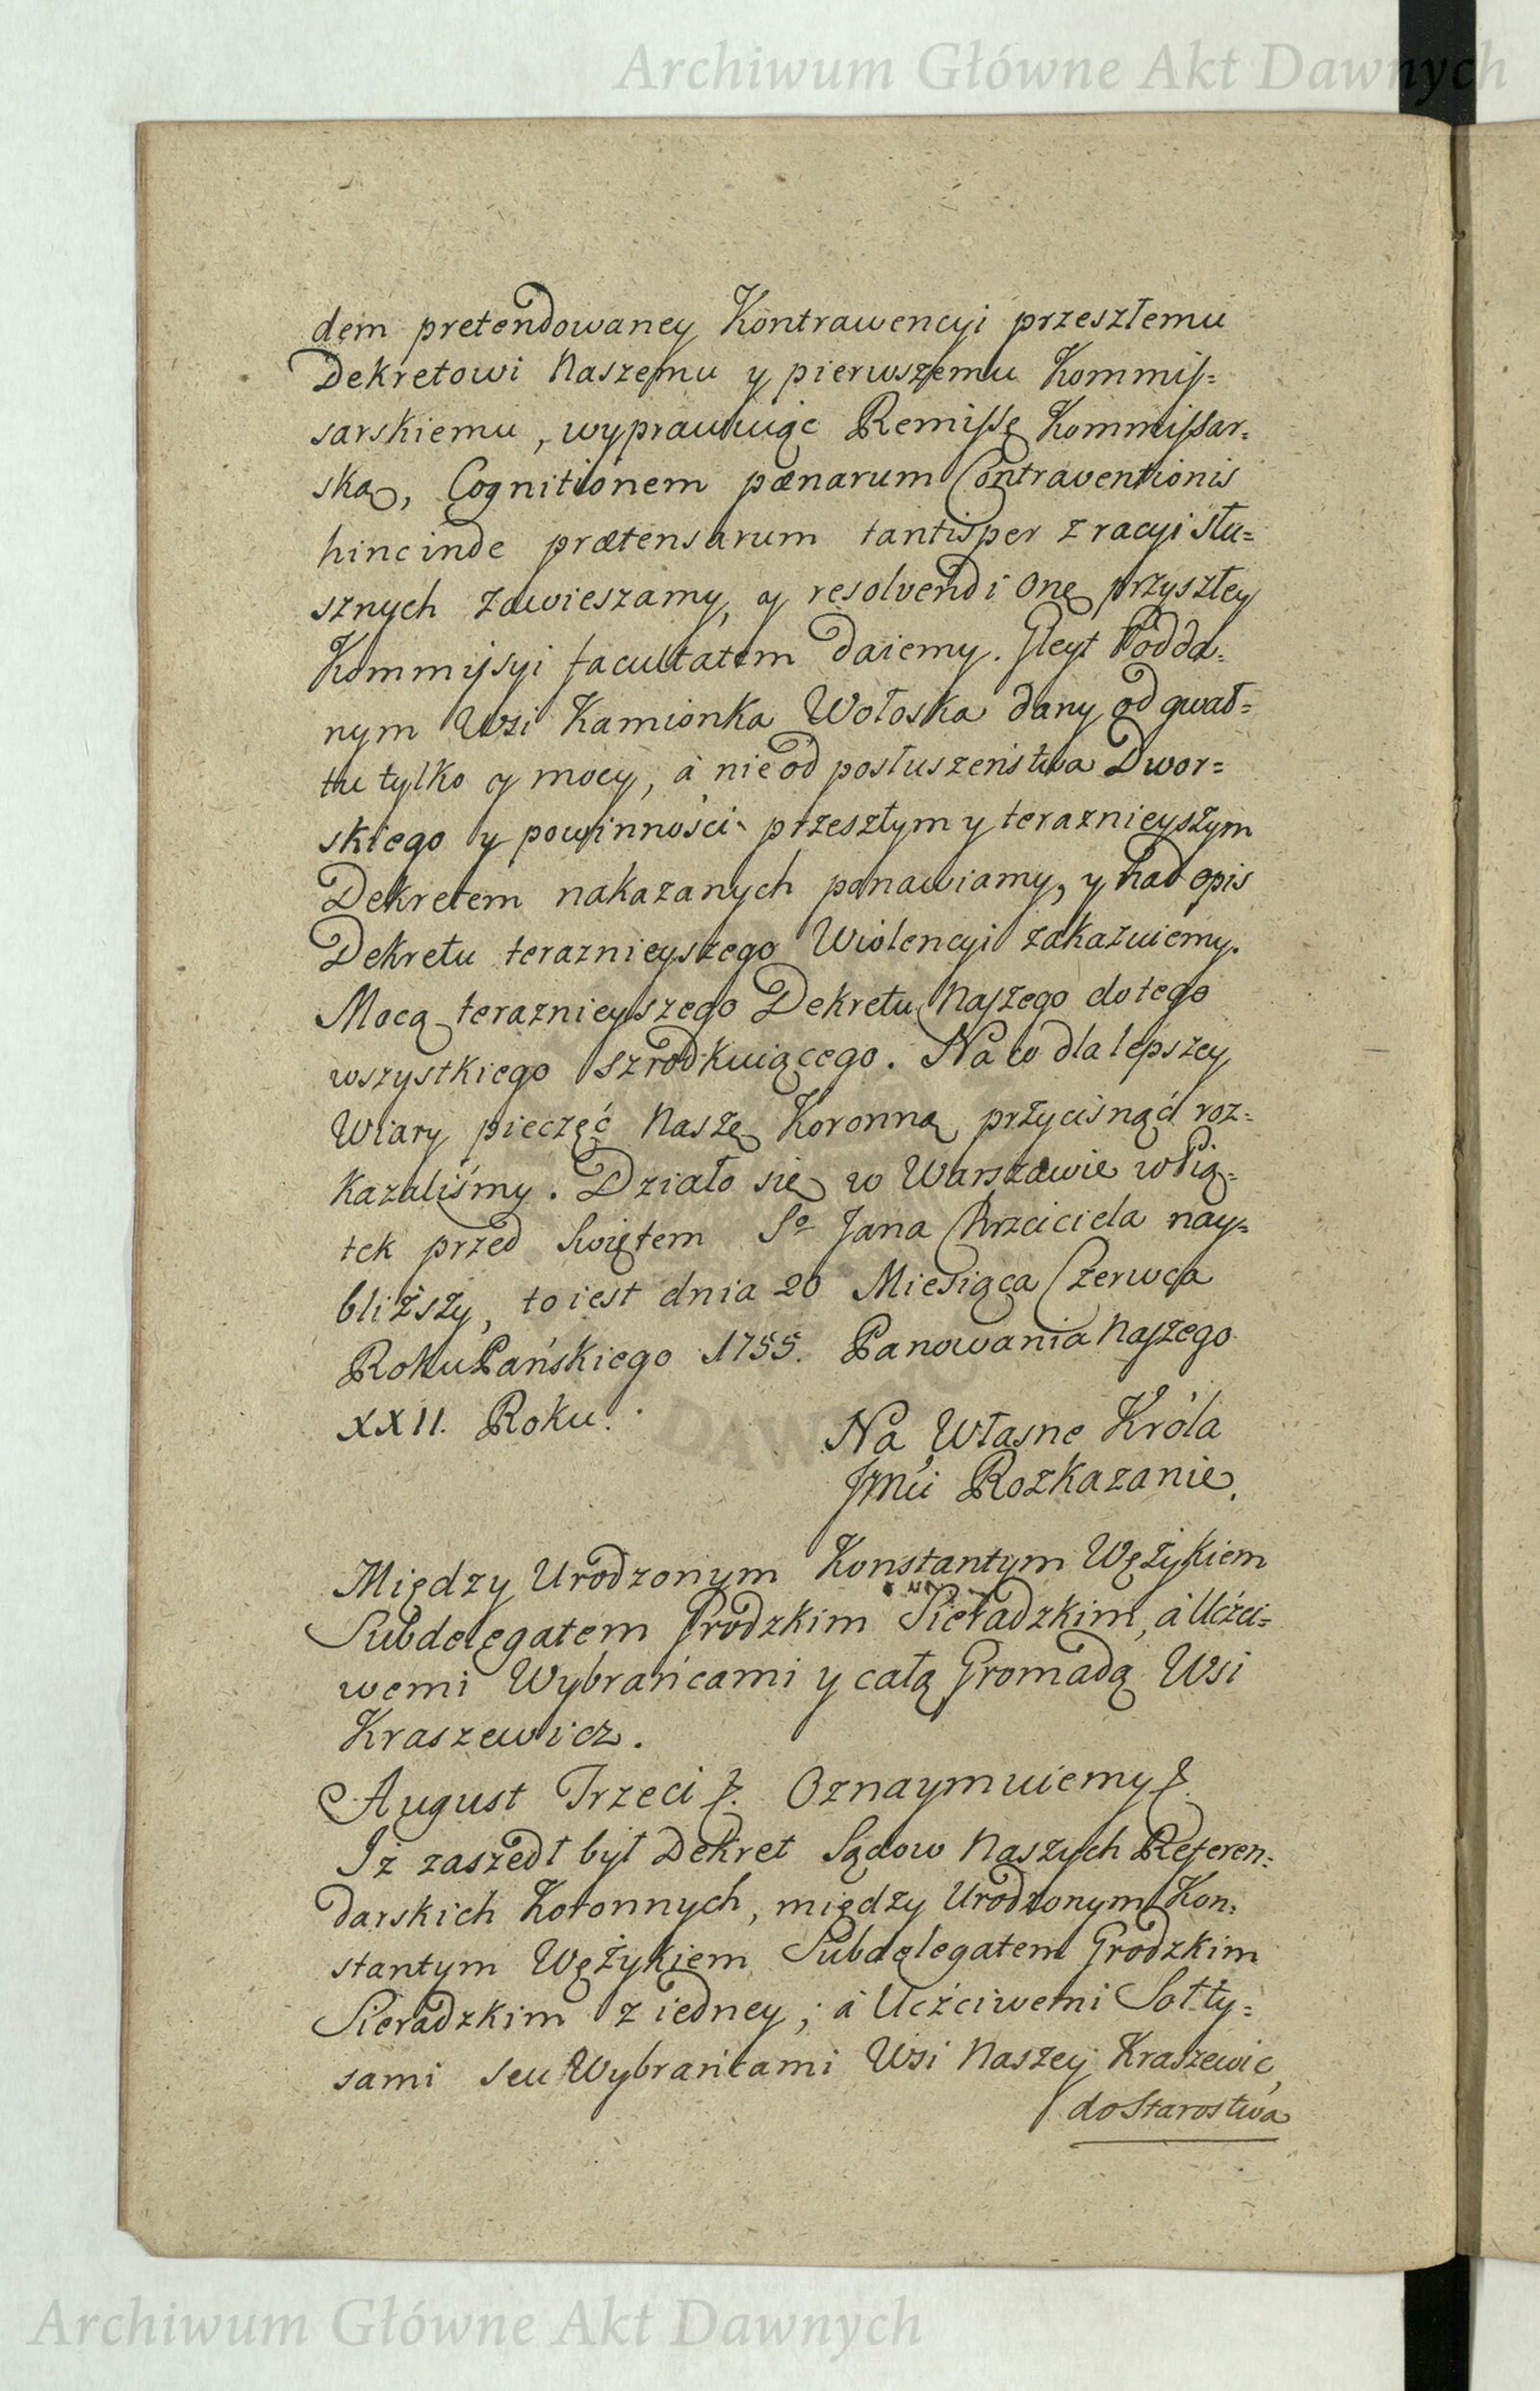 Archiwum Główne Akt Dawnych
dem pretendowaney Kontrawencyi przeszłemu
Dekretowi Naszemu y pierwszemu Kommis=
sarskiemu, wyprawuiąc Remissę Kommissar=
ską, Cognitionem pænarum Contraventionis
hinc inde prætensarum tantisper z racyi słu=
sznych zawieszamy, y resolvendi onę przyszłey
Kommissyi facultatem daiemy. Gleyt Podda=
nym Wsi Kamionka Wołoska dany od gwał=
tu tylko y mocy, à nie od posłuszeństwa Dwor=
skiego y powinności przeszłym y teraznieyszym
Dekretem nakazanych ponawiamy, y nad opis
Dekretu teraznieyszego Wiolencyi zakazuiemy.
Mocą teraznieyszego Dekretu Naszego do tego
wszystkiego szrodkuiącego. Na co dla lepszey
Wiary pieczęć Naszę Koronną przycisnąć roz=
kazaliśmy. Działo się w Warszawie w Pią=
tek przed Swiętem So Jana Chrzciciela nay=
bliższy, to iest dnia 20 Miesiąca Czerwca
Roku Pańskiego 1755. Panowania Naszego
XXII. Roku.
Na Własne Króla
Jmći Rozkazanie.
Między Urodzonym Konstantym Wężykiem
Subdelegatem Grodzkim Sieradzkim, à Uczci=
wemi Wybrańcami y całą Gromadą Wsi
Kraszewicz.
August Trzeci &. Oznaymuiemy &.
Iż zaszedł był Dekret Sądow Naszych Referen=
darskich Koronnych, między Urodzonym Kon=
stantym Wężykiem Subdelegatem Grodzkim
Sieradzkim z iedney; à Uczciwemi Sołty=
sami seu Wybrańcami Wsi Naszey Kraszewic,
do Starostwa
Archiwum Główne Akt Dawnych